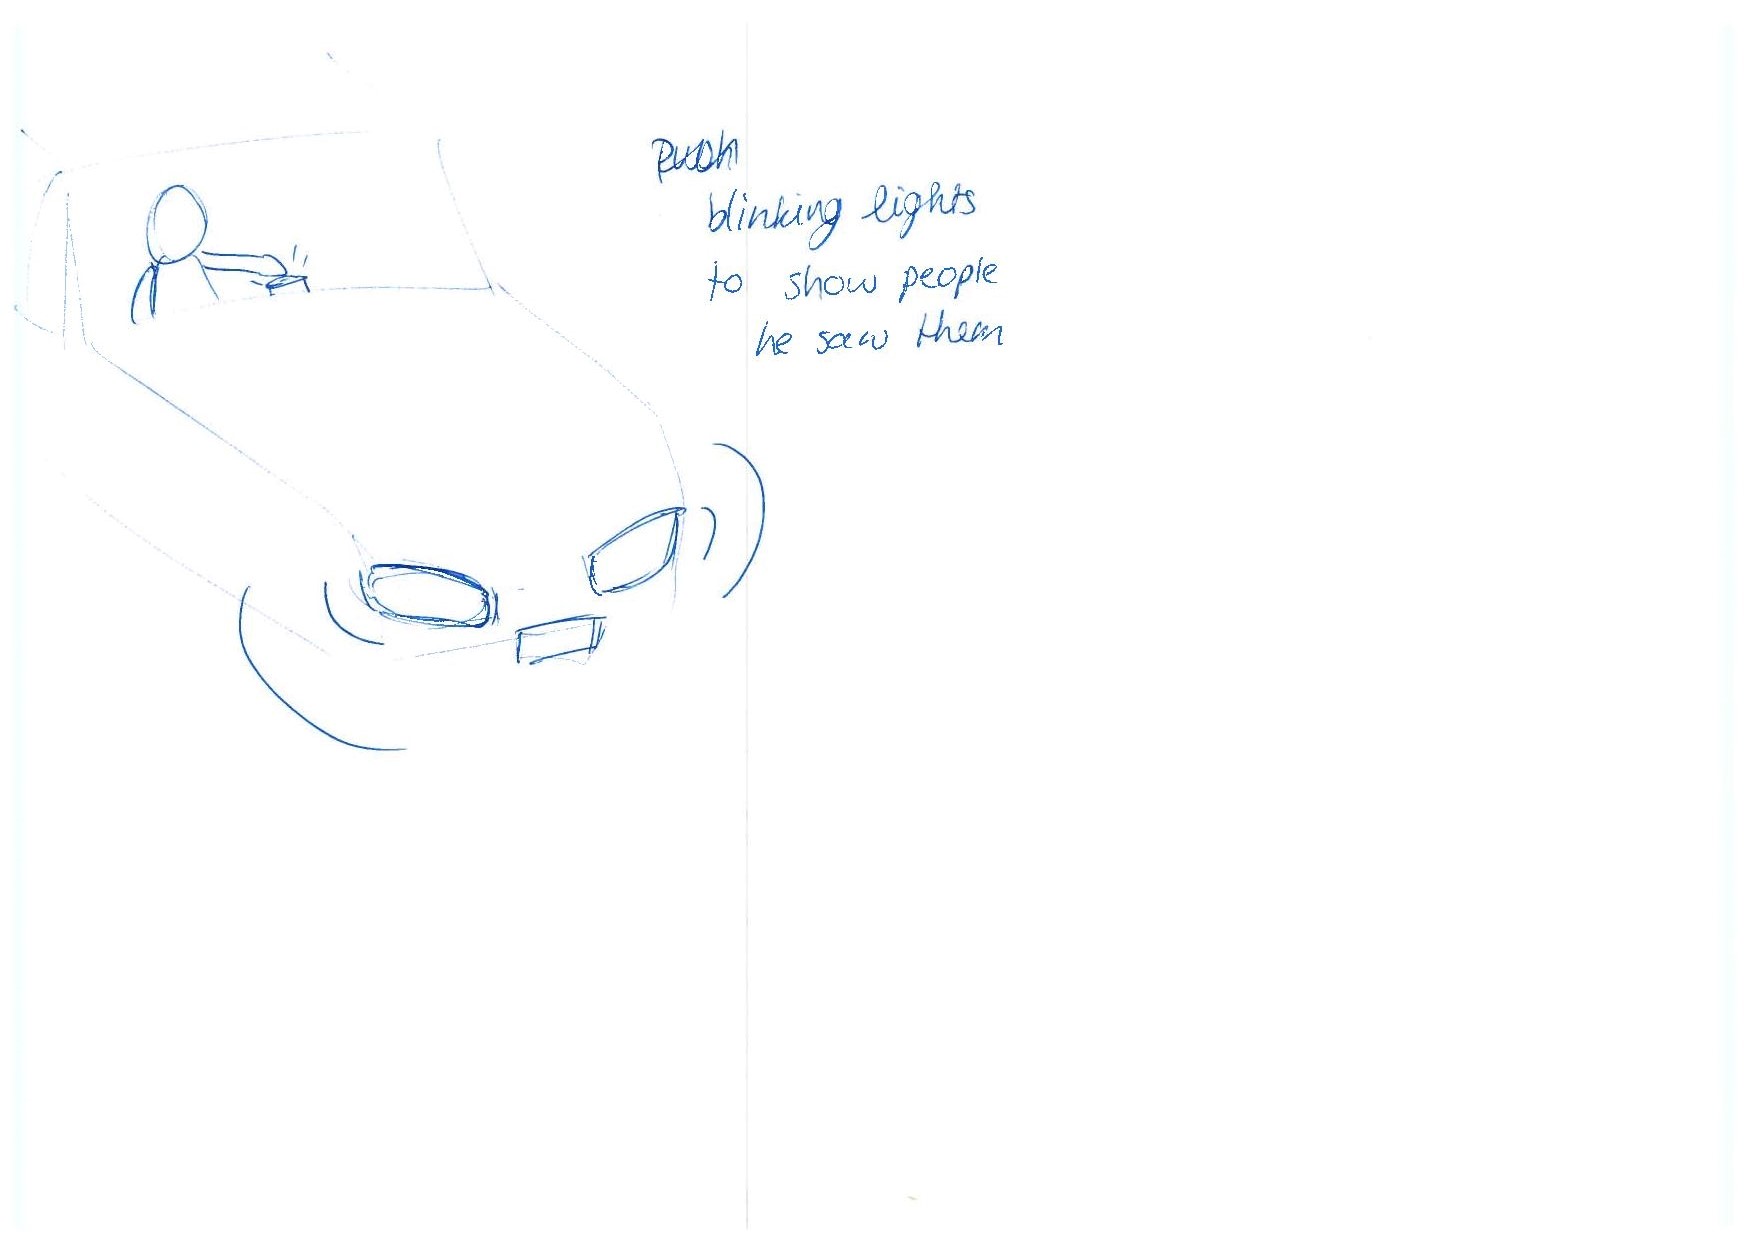 Push
blinking lights
to show people
he saw them